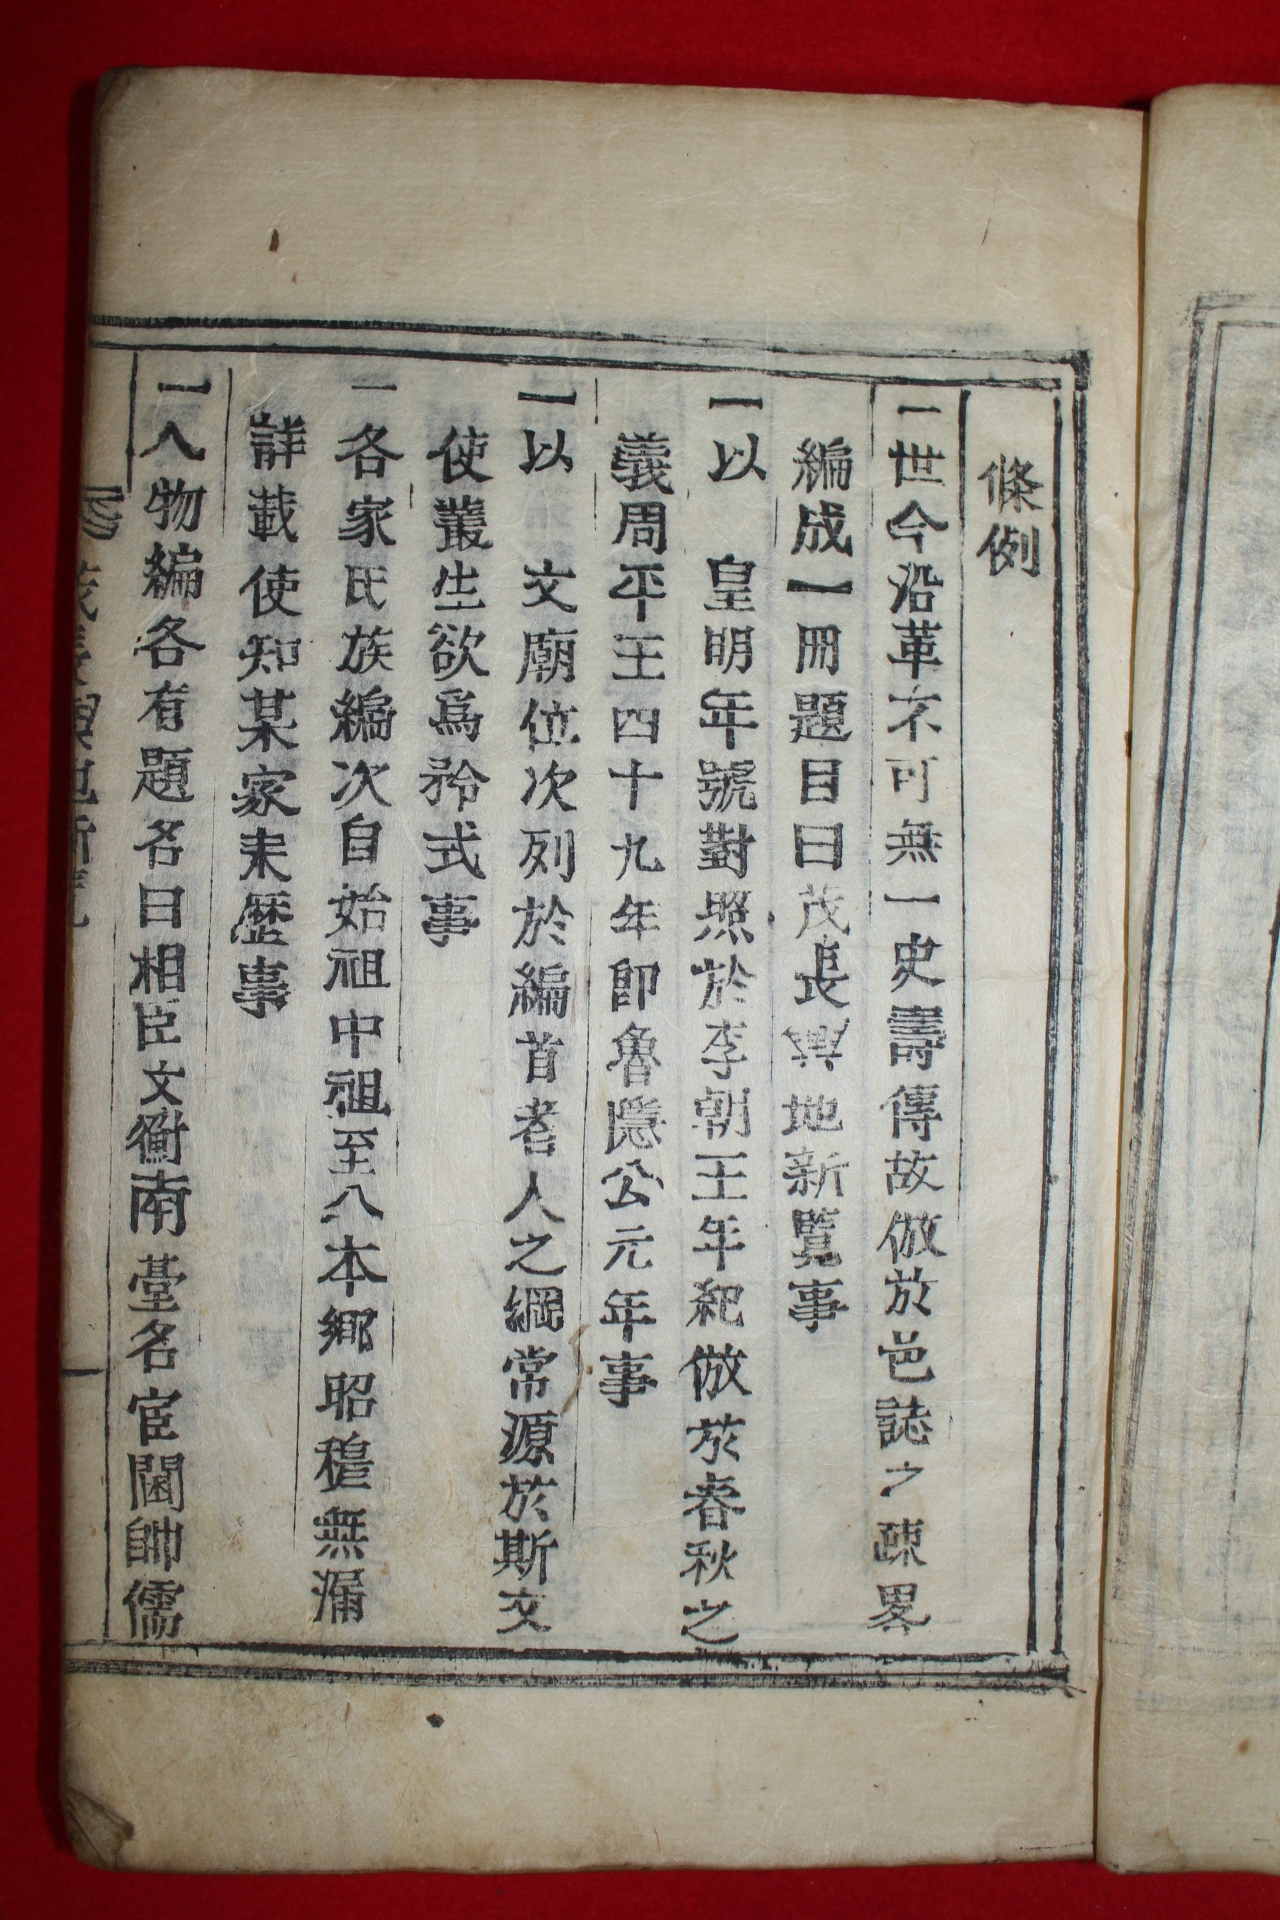 條例
一世今沿革不可無一史壽傳故倣於邑誌之疎畧
編成一冊題目曰茂長輿地新覽事
一以 皇明年號對照於李朝王年紀倣於春秋之
義周平王四十九年卽魯隱公元年事
一以 文廟位次列於編首者人之綱常源於斯文
使叢生欲爲矜式事
一各家氏族編次自始祖中祖至入本鄕昭穆無漏
詳載使知某家来歷事
一人物編各有題名曰相臣文衡南臺名宦閫帥儒
茂長輿地新覽